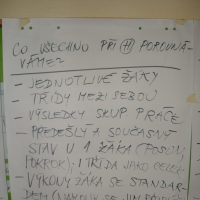 CO VŠECHNO PŘI (H) POROVNÁ-
VÁME?
- JEDNOTLIVÉ ŽÁKY
- TŘÍDY MEZI SEBOU
- VÝSLEDKY SKUP. PRÁCE
- PŘEDEŠLÝ A SOUČASNÝ
STAV U 1 ŽÁKA (POSUN,
POKROK), 1 TŘÍDA JAKO CELEK
- VÝKONY ŽÁKA SE STANDAR-
DEM